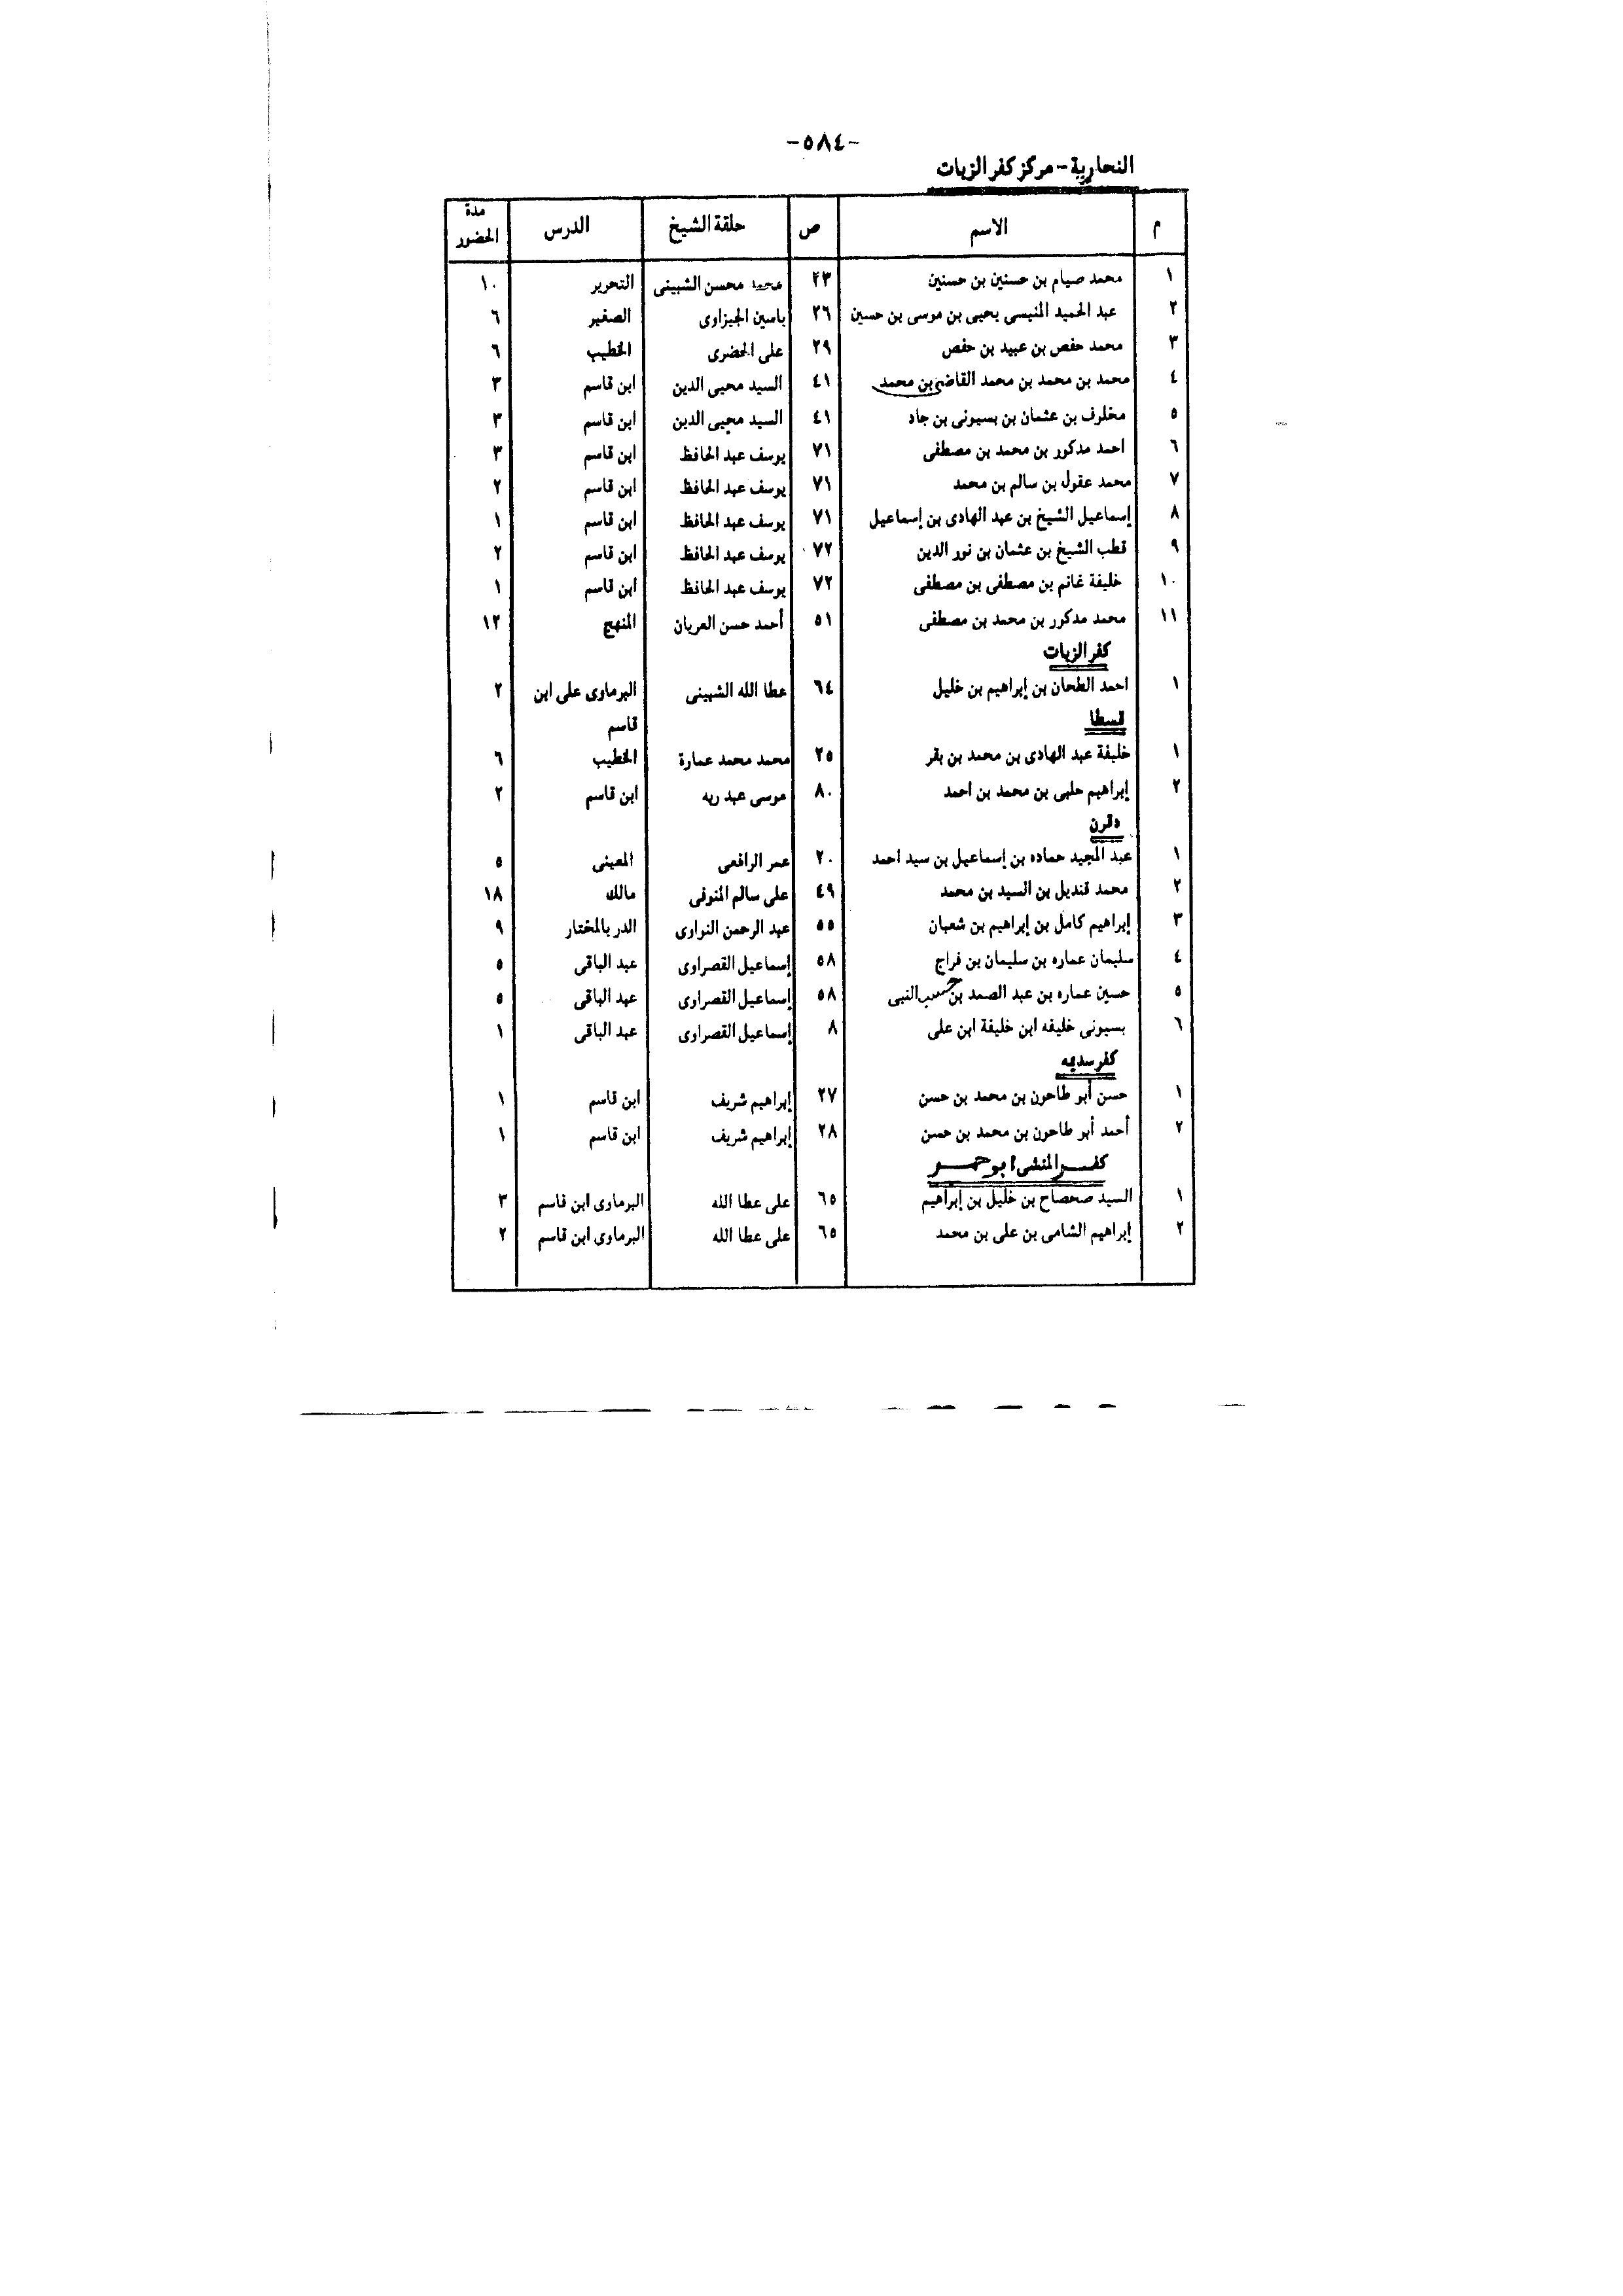 -٥٨٤-
النحارية - مركز كفر الزيات
م الاسم ص حلقة الشيخ الدرس مدة الحضور
١ محمد صيام بن حسنين بن حسنين ٢٣ محمد محسن الشبينى التحرير ١٠
٢ عبد الحميد المنيسى يحيى بن موسى بن حسين ٢٦ ياسين الجيزاوى الصغير ٦
٣ محمد حفص بن عبيد بن حفص ٢٩ على الحضرى الخطيب ٦
٤ محمد بن محمد بن محمد القاضى بن محمد ٤١ السيد محيى الدين ابن قاسم ٣
٥ مخلوف بن عثمان بن بسيونى بن جاد ٤١ السيد محيى الدين ابن قاسم ٣
٦ احمد مدكور بن محمد بن مصطفى ٧١ يوسف عبد الحافظ ابن قاسم ٣
٧ محمد عقول بن سالم بن محمد ٧١ يوسف عبد الحافظ ابن قاسم ٢
٨ إسماعيل الشيخ بن عبد الهادى بن إسماعيل ٧١ يوسف عبد الحافظ ابن قاسم ١
٩ قطب الشيخ بن عثمان بن نور الدين ٧٢ يوسف عبد الحافظ ابن قاسم ٢
١٠ خليفة غانم بن مصطفى بن مصطفى ٧٢ يوسف عبد الحافظ ابن قاسم ١
١١ محمد مدكور بن محمد بن مصطفى ٥١ أحمد حسن العريان المنهج ١٢
كفر الزيات
١ احمد الطحان بن إبراهيم بن خليل ٦٤ عطا الله الشبينى البرماوى على ابن ٢
قاسم
قسطا
١ خليفة عبد الهادى بن محمد بن بقر ٢٥ محمد محمد عمارة الخطيب ٦
٢ إبراهيم حلبى بن محمد بن احمد ٨٠ موسى عبد ربه ابن قاسم ٢
دقرن
١ عبد المجيد حماده بن إسماعيل بن سيد احمد ٢٠ عمر الرافعى المعينى ٥
٢ محمد قنديل بن السيد بن محمد ٤٩ على سالم المنوفى مالك ١٨
٣ إبراهيم كامل بن إبراهيم بن شعبان ٥٥ عبد الرحمن النواوى الدر بالمختار ٩
٤ سليمان عماره بن سليمان بن فراج ٥٨ إسماعيل القصراوى عبد الباقى ٥
٥ حسين عماره بن عبد الصمد بن حسب النبى ٥٨ إسماعيل القصراوى عبد الباقى ٥
٦ بسيونى خليفه ابن خليفة ابن على ٨ إسماعيل القصراوى عبد الباقى ١
كفر سديمه
١ حسن أبو طاحون بن محمد بن حسن ٢٧ إبراهيم شريف ابن قاسم ١
٢ أحمد أبو طاحون بن محمد بن حسن ٢٨ إبراهيم شريف ابن قاسم ١
كفر المنشى ابو حمر
١ السيد صحصاح بن خليل بن إبراهيم ٦٥ على عطا الله البرماوى ابن قاسم ٣
٢ إبراهيم الشامى بن على بن محمد ٦٥ على عطا الله البرماوى ابن قاسم ٢